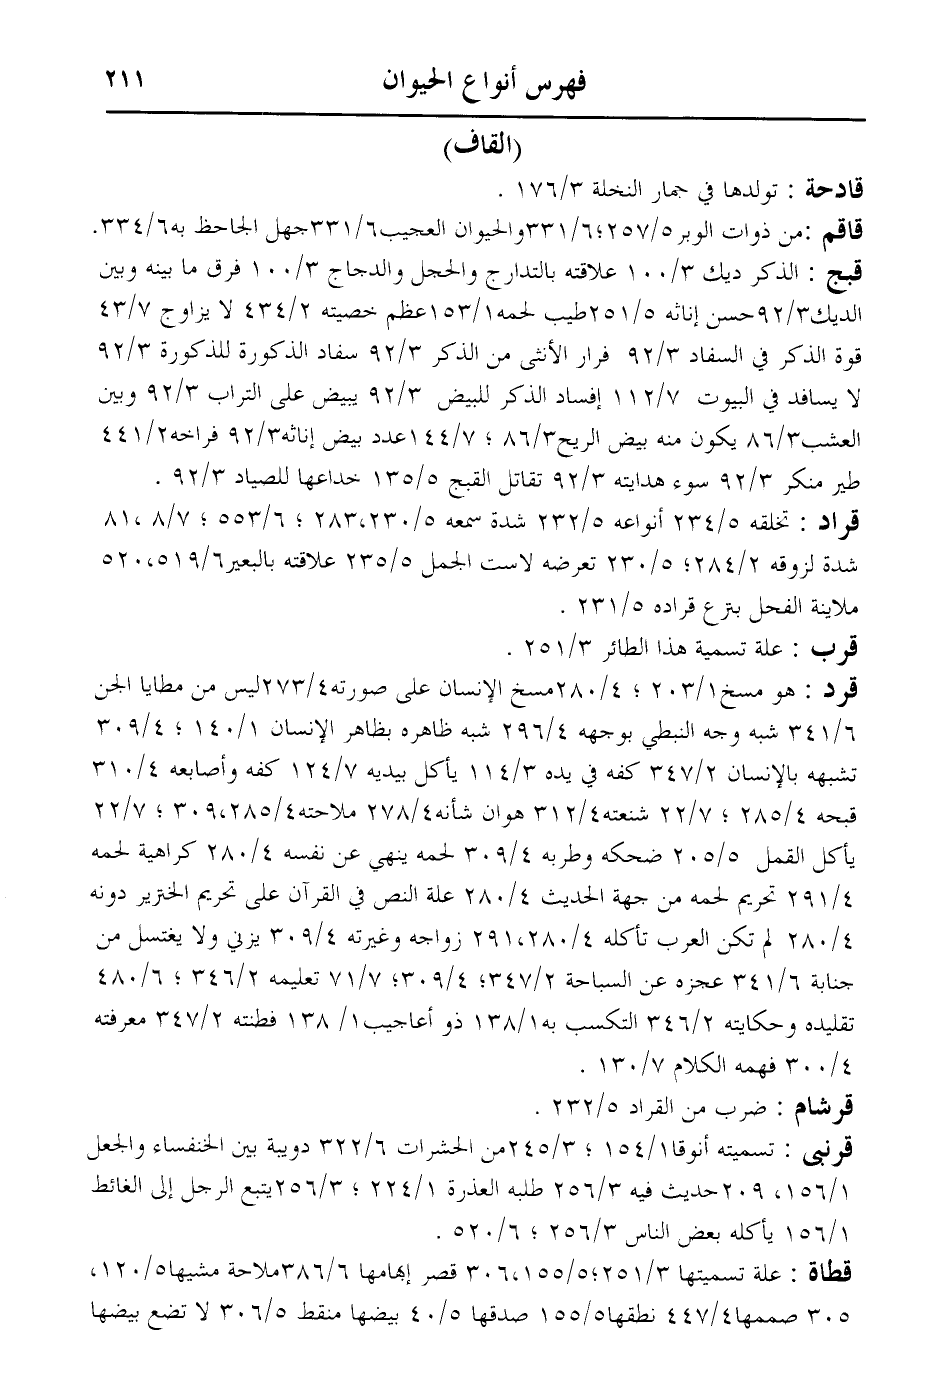 فهرس أنواع الحيوان ٢١١
(القاف)
قادحة : تولدها في جمار النخلة ١٧٦/٣ .
قاقم :من ذوات الوبر٢٥٧/٥؛٣٣١/٦والحيوان العجيب٣٣١/٦جهل الجاحظ به٣٣٤/٦.
قبج : الذكر ديك ١٠٠/٣ علاقته بالتدارج والحجل والدجاج ١٠٠/٣ فرق ما بينه وبين
الديك٩٢/٣حسن إناثه ٢٥١/٥طيب لحمه١٥٣/١عظم خصيته ٤٣٤/٢ لا يزاوج ٤٣/٧
قوة الذكر في السفاد ٩٢/٣ فرار الأنثى من الذكر ٩٢/٣ سفاد الذكورة للذكورة ٩٢/٣
لا يسافد في البيوت ١١٢/٧ إفساد الذكر للبيض ٩٢/٣ يبيض على التراب ٩٢/٣ وبين
العشب٨٦/٣ يكون منه بيض الريح٨٦/٣ ؛ ١٤٤/٧عدد بيض إناثه٩٢/٣ فراخه٤٤١/٢
طير منكر ٩٢/٣ سوء هدايته ٩٢/٣ تقاتل القبج ١٣٥/٥ خداعها للصياد ٩٢/٣ .
قراد : تخلقه ٢٣٤/٥ أنواعه ٢٣٢/٥ شدة سمعه ٢٨٣،٢٣٠/٥ ؛ ٥٥٣/٦ ؛ ٨/٧ ،٨١
شدة لزوقه ٢٨٤/٢؛ ٢٣٠/٥ تعرضه لاست الجمل ٢٣٥/٥ علاقته بالبعير٥٢٠،٥١٩/٦
ملاينة الفحل بنزع قراده ٢٣١/٥ .
قرب : علة تسمية هذا الطائر ٢٥١/٣ .
قرد : هو مسخ٢٠٣/١ ؛ ٢٨٠/٤مسخ الإنسان على صورته٢٧٣/٤ليس من مطايا الجن
٣٤١/٦ شبه وجه النبطي بوجهه ٢٩٦/٤ شبه ظاهره بظاهر الإنسان ١٤٠/١ ؛ ٣٠٩/٤
تشبهه بالإنسان ٣٤٧/٢ كفه في يده ١١٤/٣ يأكل بيديه ١٢٤/٧ كفه وأصابعه ٣١٠/٤
قبحه ٢٨٥/٤ ؛ ٢٢/٧ شنعته٣١٢/٤ هوان شأنه٢٧٨/٤ ملاحته٣٠٩،٢٨٥/٤ ؛ ٢٢/٧
يأكل القمل ٢٠٥/٥ ضحكه وطربه ٣٠٩/٤ لحمه ينهي عن نفسه ٢٨٠/٤ كراهية لحمه
٢٩١/٤ تحريم لحمه من جهة الحديث ٢٨٠/٤ علة النص في القرآن على تحريم الخنزير دونه
٢٨٠/٤ لم تكن العرب تأكله ٢٩١،٢٨٠/٤ زواجه وغيرته ٣٠٩/٤ يزني ولا يغتسل من
جنابة ٣٤١/٦ عجزه عن السباحة ٣٤٧/٢؛ ٣٠٩/٤؛ ٧١/٧ تعليمه ٣٤٦/٢ ؛ ٤٨٠/٦
تقليده وحكايته ٣٤٦/٢ التكسب به١٣٨/١ ذو أعاجيب١/ ١٣٨ فطنته ٣٤٧/٢ معرفته
٣٠٠/٤ فهمه الكلام ١٣٠/٧ .
قرشام : ضرب من القراد ٢٣٢/٥ .
قرنبى : تسميته أنوقا١٥٤/١ ؛ ٢٤٥/٣من الحشرات ٣٢٢/٦ دويبة بين الخنفساء والجعل
١٥٦/١، ٢٠٩حديث فيه ٢٥٦/٣ طلبه العذرة ٢٢٤/١ ؛ ٢٥٦/٣يتبع الرجل إلى الغائط
١٥٦/١ يأكله بعض الناس ٢٥٦/٣ ؛ ٥٢٠/٦ .
قطاة : علة تسميتها ٢٥١/٣؛٣٠٦،١٥٥/٥ قصر إبهامها ٣٨٦/٦ملاحة مشيها١٢٠/٥،
٣٠٥ صممها٤٤٧/٤ نطقها١٥٥/٥ صدقها ٤٠/٥ بيضها منقط ٣٠٦/٥ لا تضع بيضها